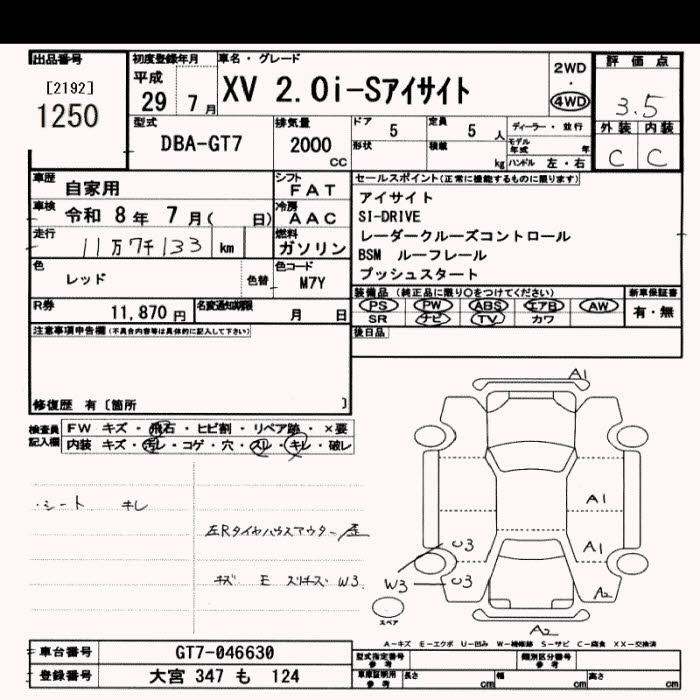 出品番号
[2192]
1250
初度登録年月
平成
29 7月
車名・グレード
XV 2.0i-Sアイサイト
2WD
・
4WD
評価点
3.5
外装 内装
C C
型式
DBA-GT7
排気量
2000
CC
ドア 5
定員 5 人
形状
積載 kg
ディーラー・並行
モデル年式 年
ハンドル 左・右
車歴 自家用
シフト FAT
車検 令和 8年 7月( 日)
冷房 AAC
走行 11万7千133 km
燃料 ガソリン
色 レッド
色替
色コード M7Y
R券 11,870 円
名変通知期限 月 日
セールスポイント(正常に機能するものに限ります)
アイサイト
SI-DRIVE
レーダークルーズコントロール
BSM ルーフレール
プッシュスタート
装備品 (純正品に限り○をつけてください)
PS PW ABS エアB AW
SR ナビ TV カワ
新車保証書
有・無
後日品
注意事項申告欄(不具合内容等は具体的に記入して下さい)
修復歴 有〔箇所 〕
検査員記入欄
FW キズ・飛石・ヒビ割・リペア跡・×要
内装 キズ・汚レ・コゲ・穴・スレ・キレ・破レ
・シート キレ
左Rタイヤハウスアウター歪
キズ E スリキズ W3
A1
A1
A1
A2
U3
W3
U3
スペア
A2
A-キズ E-エクボ U-凹み W-補修跡 S-サビ C-腐食 XX-交換済
車台番号 GT7-046630
登録番号 大宮 347 も 124
型式指定番号 参考
類別区分番号 参考
車庫証明用 参考 長さ cm 幅 cm 高さ cm